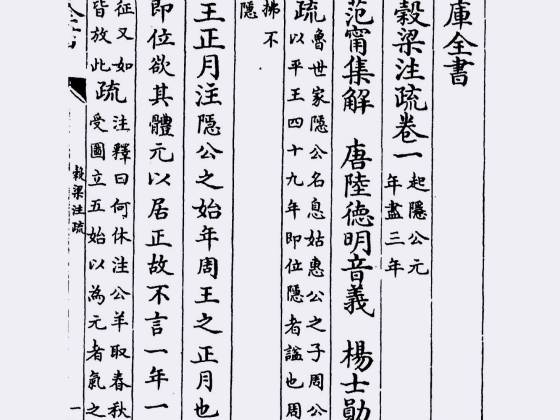 庫全書
穀梁注疏卷一 起隱公元
年盡三年
范甯集解 唐陸德明音義 楊士勛
疏 魯世家隱公名息姑惠公之子周公
以平王四十九年即位隱者諡也周
拂不
隱
王正月注隱公之始年周王之正月也
即位欲其體元以居正故不言一年一
征又如
皆放此 疏 注釋曰何休注公羊取春秋
受圖立五始以為元者氣之
穀梁注疏
一